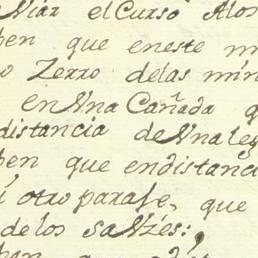 Viar el Curso Alos
ben que eneste mi
o Zerro delas min
en Vna Cañada q
distancia de Vna leg
ben que endistancia
i otro paraje, que
de los saVzes;